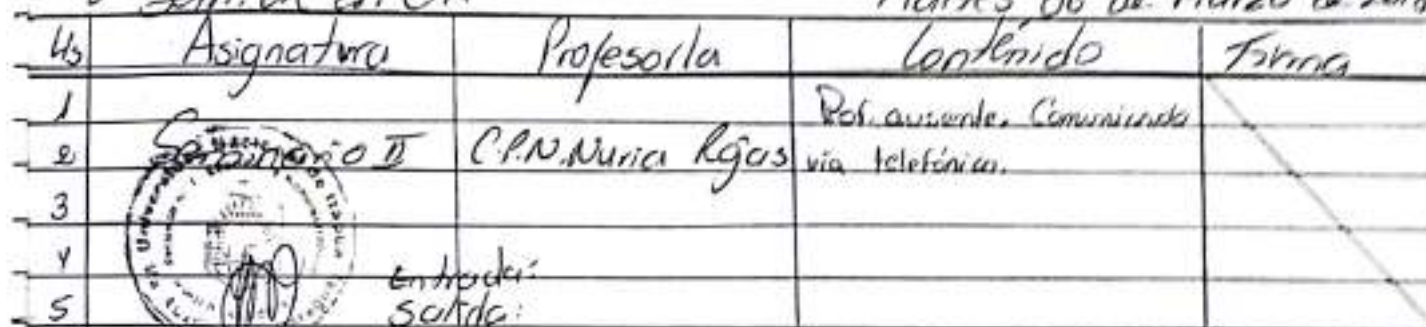 Martes 06 de Marzo de
Hs Asignatura Profesor/a Contenido Firma
1 Prof. ausente. Comunicado
2 Seminario II C.P.N. Nuria Rojas vía telefónica.
3
4 Entrada:
5 Salida: